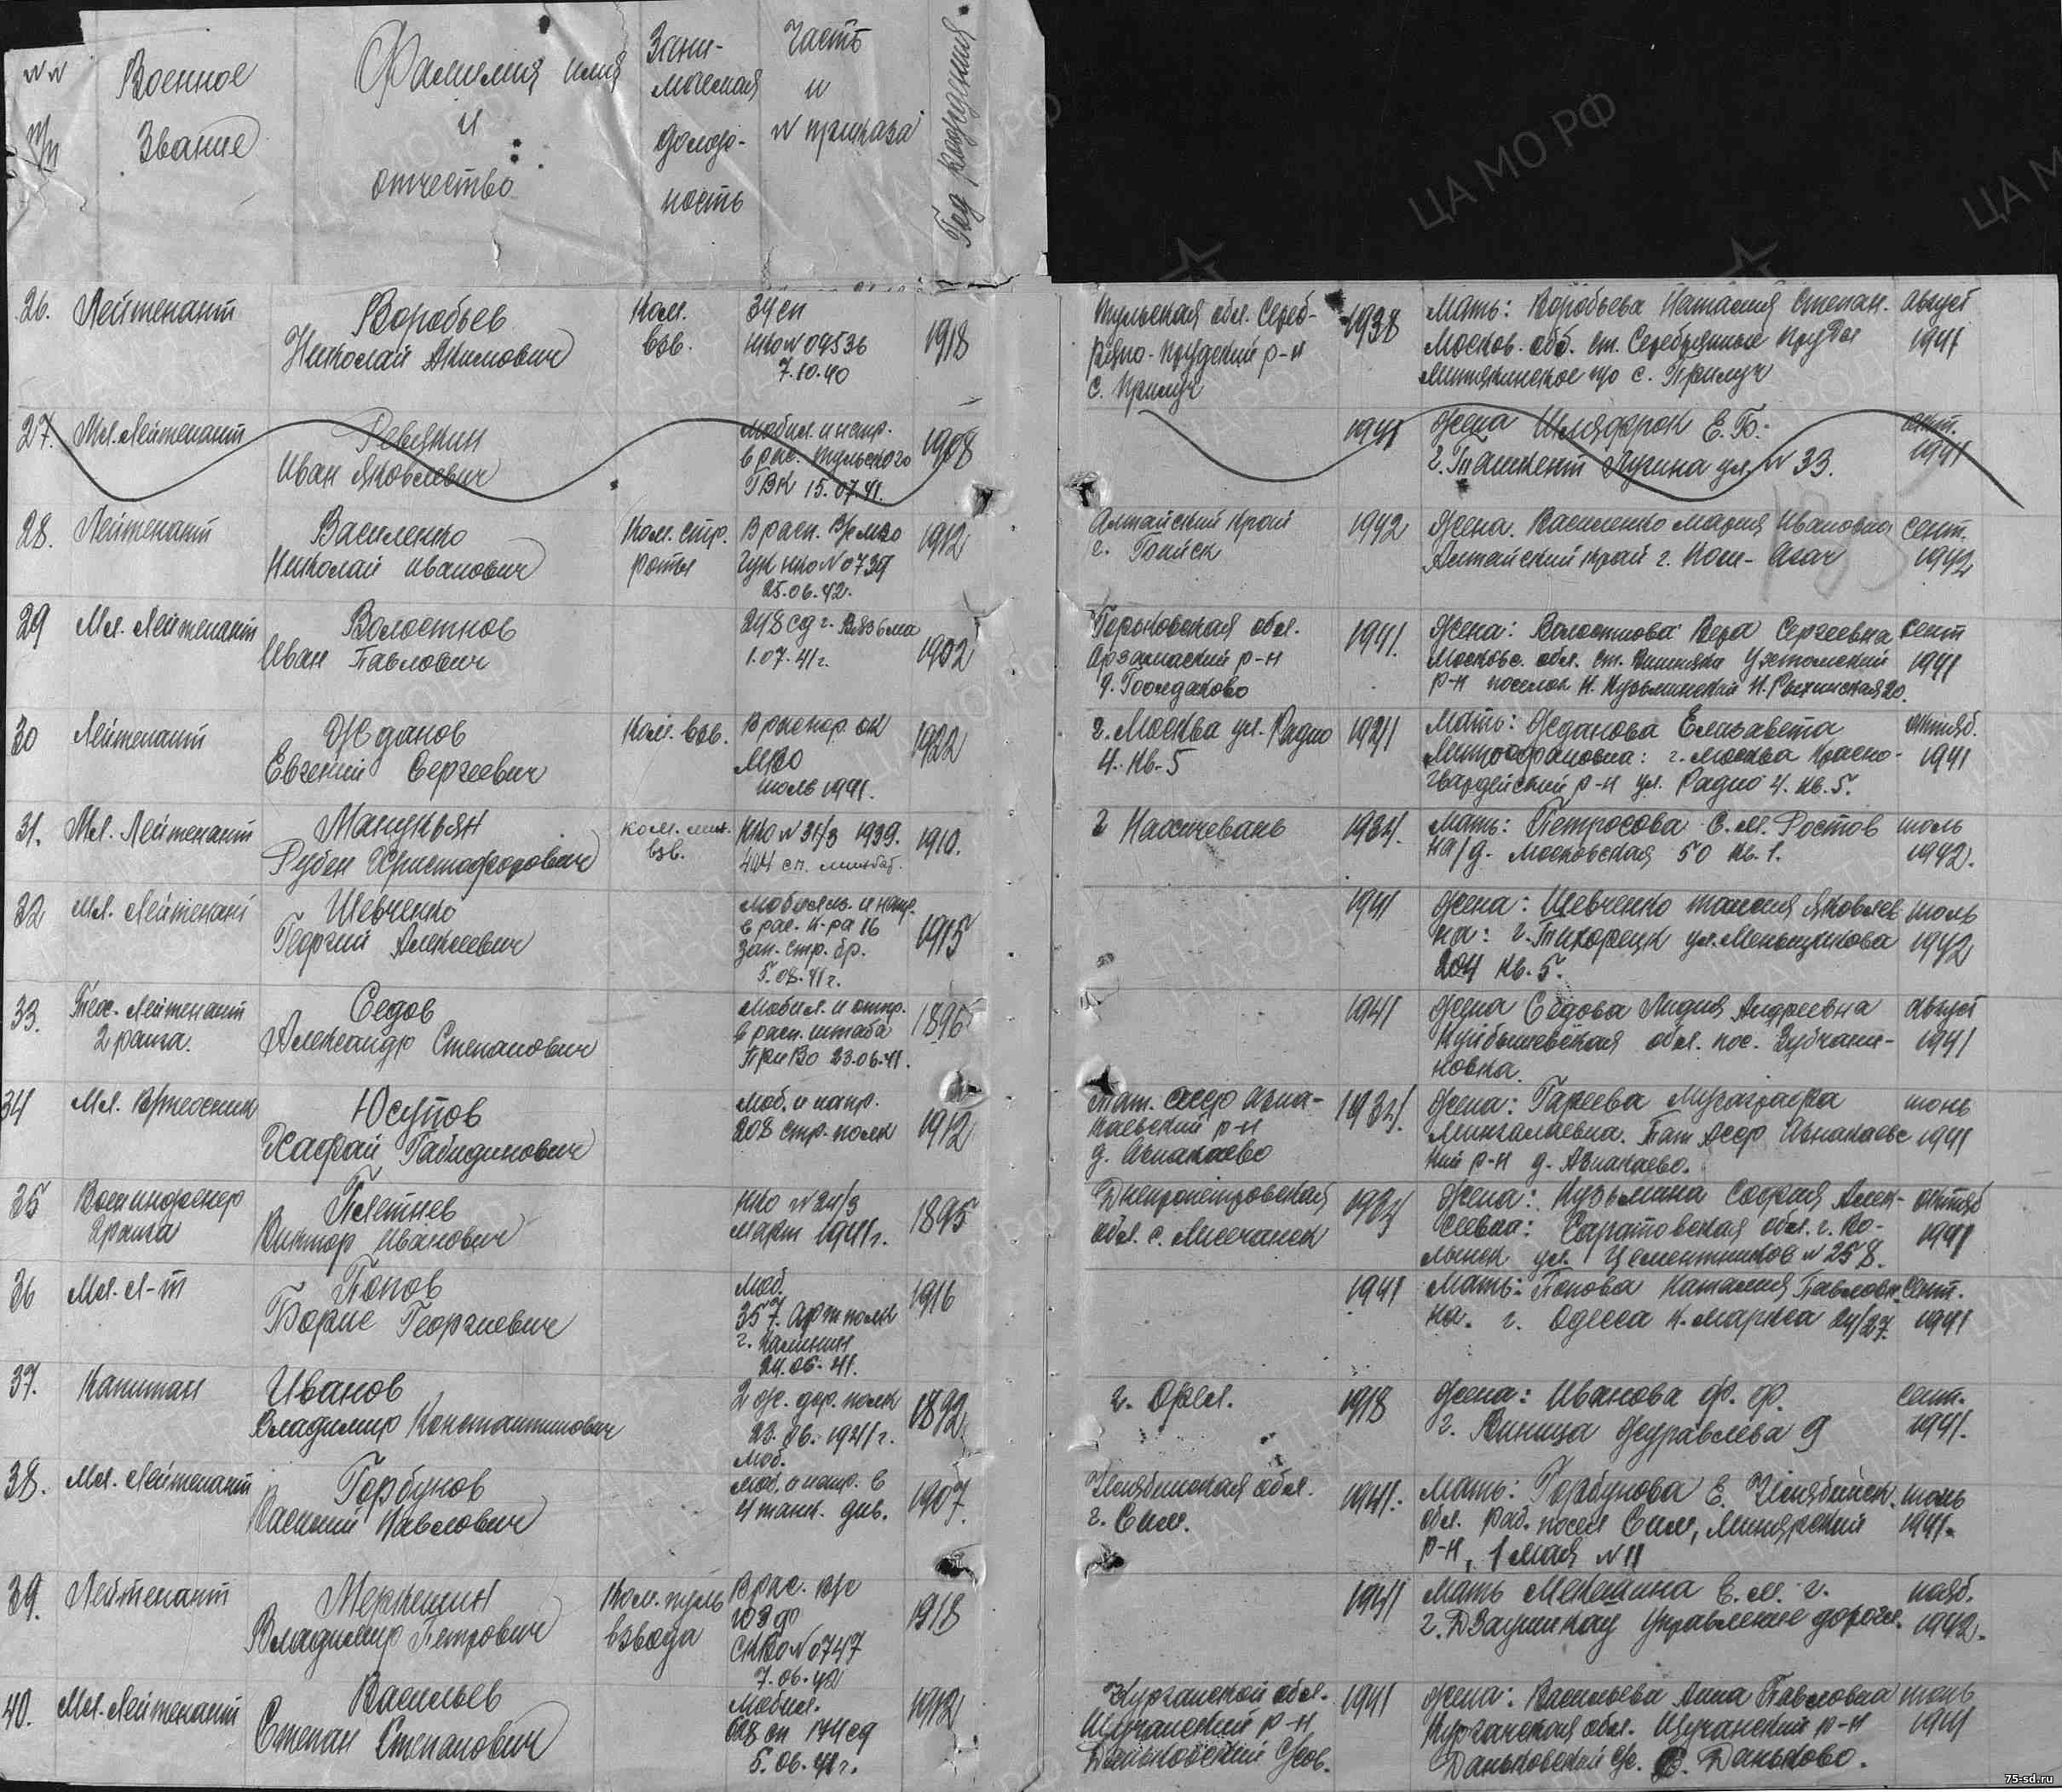 №№ п/п
Военное Звание
Фамилия имя и отчество
Зани-
маемая
должно-
ность
Часть
и
№ приказа
Год рождения
26. Лейтенант
Воробьев
Николай Акимович
Ком.
взв.
НКО № 04536
7.10.40
1918
Тульская обл. Сереб-
рдский р-н
с. Прилуч
1938
Мать: Воробьева Наталия Степан.
Москов. обл. ст. Серебрянные Пруды
с. Прилуч
август
1941
27. Мл. Лейтенант
Ревякин
Иван Яковлевич
Мобил. и напр.
в рас. Тульского
ГВК 15.07.41.
1908
1941
Жена Е. Б.
г. Ташкент ул. № 33.
окт.
1941
28. Лейтенант
Василенко
Николай Иванович
Ком. стр.
роты
В расп.
ГУК НКО № 0739
25.06.42.
1912
Алтайский край
г. Бийск
1942
Жена. Василенко Мария Ивановна
Алтайский край г. Кош-Агач
сент.
1942
29 Мл. Лейтенант
Волостнов
Иван Павлович
248 сд г. Вязьма
1.07.41 г.
1902
Горьковская обл.
Арзамаский р-н
д. Болдаково
1941.
Жена: Волостнова Вера Сергеевна
Москов. обл. ст. Вишняки Ухтомский
р-н поселок Н. Кузьминский
сент
1941
30 Лейтенант
Жданов
Евгений Сергеевич
Ком. взв.
В распор. ОК
МВО
июль 1941.
1922
г. Москва ул. Радио
4. кв. 5
1941
Мать: Жданова Елизавета
Митрофановна: г. Москва Красно-
гвардейский р-н ул. Радио 4. кв. 5.
октяб.
1941
31. Мл. Лейтенант
Манукьян
Рубен Христофорович
ком. мин.
взв.
НКО № 31/3 1939.
404 сп. минбат.
1910.
г Нахичевань
Мать: Петросова С. М. Ростов
на/д. Московская 50 кв. 1.
июль
1942.
32 Мл. Лейтенант
Шевченко
Георгий Алексеевич
Мобилиз. и напр.
в рас. к-ра 16
зап. стр. бр.
5.08.41 г.
1915
1941
Жена: Шевченко Таисия Яковлев
на: г. Тихорецк ул. Меньщикова
204 кв. 5.
июль
1942
33. Тех. Лейтенант
2 ранга.
Седов
Александр Степанович
Мобил. и отпр.
в расп. штаба
ПриВО 23.06.41.
1896
1941
Жена Седова Лидия Андреевна
Куйбышевская обл. пос. Зубчани-
новка.
август
1941
34 Мл.
Юсупов
Моб. и напр.
208 стр. полк
1912
Тат. АССР Азна-
каевский р-н
д. Азнакаево
1934.
Жена: Гареева
Мингалаевна. Тат АССР Азнакаевс
кий р-н д. Азнакаево.
июнь
1941
35 Военинженер
2 ранга
Плетнев
Виктор Иванович
НКО № 24/3
Март 1941 г.
1895
Днепропетровская
обл. с. Лисичанск
Жена: Кузьмина София Алек-
сеевна: Саратовская обл. г. Во-
льск ул. Цементников № 258.
октяб
1941
36 Мл. л-т
Попов
Борис Георгиевич
Моб.
357. Арт полк
г. Калинин
24.06.41.
1916
1941
Мать: Попова Наталия Павлов
на. г. Одесса К. Маркса 24/27.
Сент.
1941
37. Капитан
Иванов
Владимир Константинович
2 ж. дор. полк
23.06.1941 г.
Моб.
1892
г. Орел.
1918
Жена: Иванова Ф. Ф.
г. Виница Журавлева 9
Сент.
1941.
38. Мл. Лейтенант
Горбунов
Василий Павлович
Моб. и напр. в
4 танк. див.
1907.
Челябинская обл.
г. Сим.
1941.
Мать: Горбунова Е. Челябинск.
обл. раб. посел Сим, Миньярский
р-н, 1 Мая № 11
июль
1941.
39. Лейтенант
Меркешин
Владимир Петрович
Ком. пуль
взвода
В рас.
ЮЗФ
СКВО № 0747
7.06.42
1918
1941
Мать Е. М. г.
г. Дзауджикау Управление дороги.
нояб.
1942.
40. Мл. Лейтенант
Васильев
Степан Степанович
Мобил.
628 сп 174 сд
5.06.41 г.
1912
Курганской обл.
Щучанский р-н
Даньковский с/сов.
1941
Жена: Васильева Анна Павловна
Курганская обл. Щучанский р-н
Даньковский с/с. д. Даньково.
июнь
1941
ЦА МО РФ
75-sd.ru